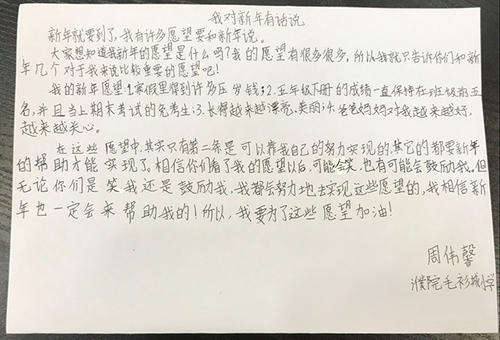 我对新年有话说
新年就要到了,我有许多愿望要和新年说。
大家想知道我新年的愿望是什么吗?我的愿望有很多很多,所以我就只告诉你们和新
年几个对于我来说比较重要的愿望吧!
我的新年愿望:1.寒假里得到许多压岁钱;2.五年级下册的成绩一直保持在班级前五
名,并且当上期末考试的免考生;3.长得越来越漂亮、美丽;4.爸爸妈妈对我越来越好,
越来越关心。
在这些愿望中,其实只有第二条是可以靠我自己的努力实现的,其它的都要新年
的帮助才能实现了。相信你们看了我的愿望以后,可能会笑,也有可能会鼓励我。但
无论你们是笑我还是鼓励我,我都会努力地去实现这些愿望的,我相信新
年也一定会来帮助我的!所以,我要为了这些愿望加油!
周伟馨
濮院毛衫城小学